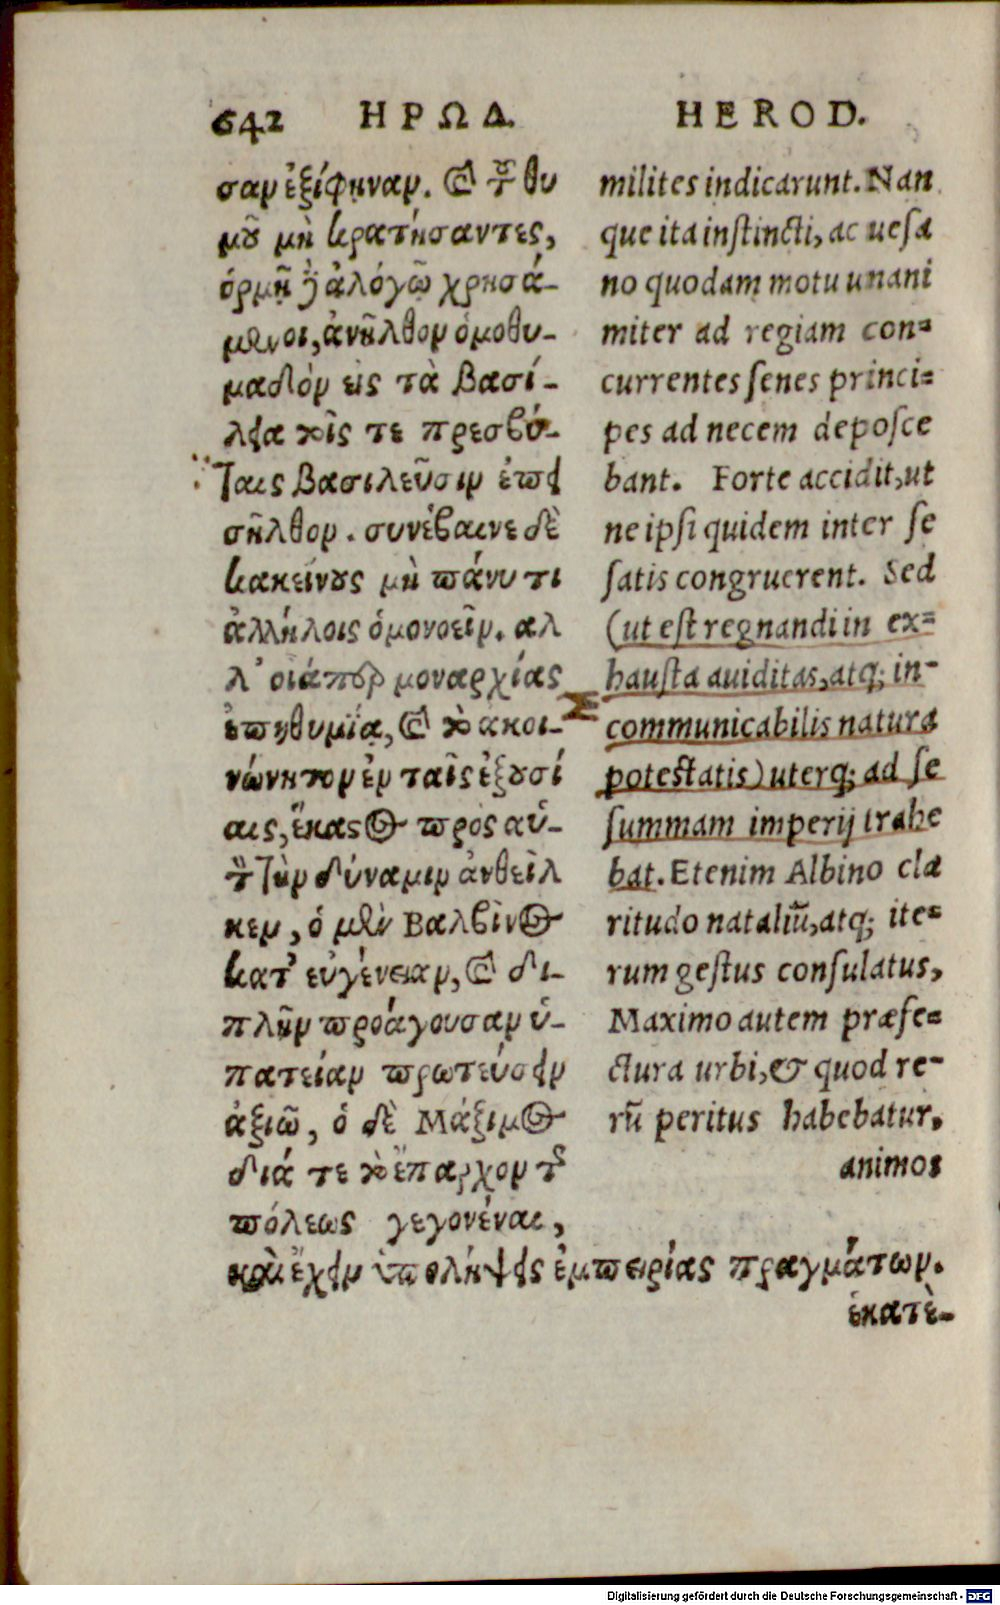 642 ΗΡΩΔ. HEROD.
σαν ἐξέφηναν. καὶ τοῦ θυ
μοῦ μὴ κρατήσαντες,
ὁρμῇ τε ἀλόγῳ χρησά-
μενοι, ἀνῆλθον ὁμοθυ-
μαδὸν εἰς τὰ βασί-
λεια τοῖς τε πρεσβύ-
ταις βασιλεῦσιν ἐπει
σῆλθον. συνέβαινε δὲ
κακείνους μὴ πάνυ τι
ἀλλήλοις ὁμονοεῖν. αλ
λ' οἱάπερ μοναρχίας
ἐπιθυμία, καὶ τὸ ἀκοι-
νώνητον ἐν ταῖς ἐξουσί
αις, ἕκαστος πρὸς αὑ-
τὸν τὴν δύναμιν ἀνθεῖλ
κεν, ὁ μὲν Βαλβῖνος
κατ' εὐγένειαν, καὶ δι-
πλῆν προάγουσαν ὑ-
πατείαν πρωτεύειν
ἀξιῶ, ὁ δὲ Μάξιμος
διά τε τὸ ἔπαρχον τῆς
πόλεως γεγονέναι,
καὶ ἔχειν ὑπολήψεις ἐμπειρίας πραγμάτων.
ἑκατὲ-
milites indicarunt. Nan
que ita instincti, ac uesa
no quodam motu unani
miter ad regiam con-
currentes senes princi-
pes ad necem deposce
bant. Forte accidit, ut
ne ipsi quidem inter se
satis congruerent. Sed
(ut est regnandi in ex-
hausta auiditas, atq; in-
communicabilis natura
potestatis) uterq; ad se
summam imperij trahe
bat. Etenim Albino cla
ritudo nataliū, atq; ite-
rum gestus consulatus,
Maximo autem præfe-
ctura urbi, & quod re-
rū peritus habebatur,
animos
Digitalisierung gefördert durch die Deutsche Forschungsgemeinschaft - DFG